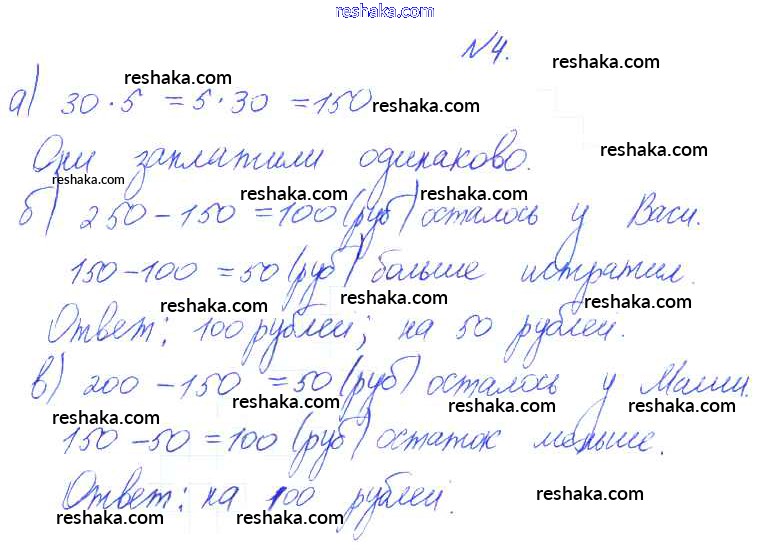 reshaka.com
№4.
reshaka.com reshaka.com
а) 30 · 5 = 5 · 30 = 150 reshaka.com
reshaka.com
Они заплатили одинаково.
reshaka.com reshaka.com reshaka.com
б) 250 - 150 = 100 (руб) осталось у Васи.
150 - 100 = 50 (руб) больше истратил.
reshaka.com reshaka.com reshaka.com
Ответ: 100 рублей; на 50 рублей.
в) 200 - 150 = 50 (руб) осталось у Маши.
reshaka.com reshaka.com reshaka.com reshaka.com
150 - 50 = 100 (руб) остаток меньше.
Ответ: на 100 рублей.
reshaka.com
reshaka.com reshaka.com reshaka.com